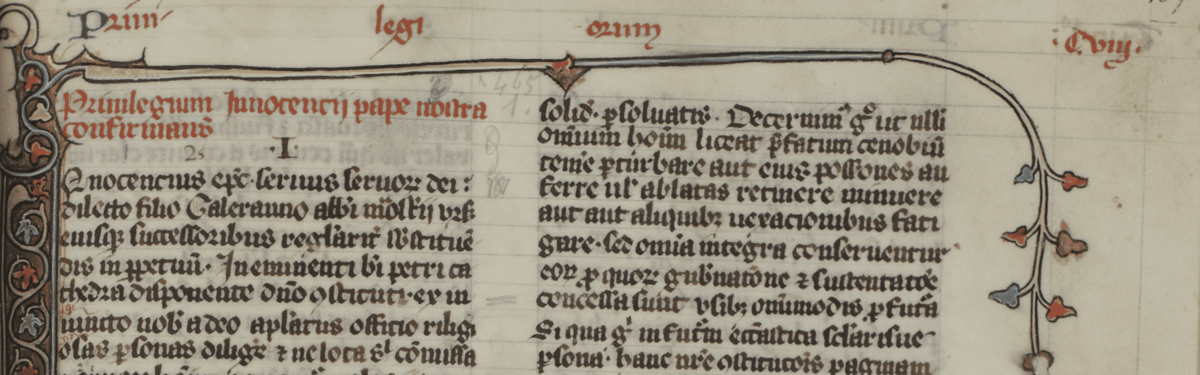 Priui legi orum · Cviij.
Priuilegium Innocencij pape nostra
confirmans
·I·
Inocencius epc̄ seruus seruoꝝ dei:
dilecto filio Galeranno abbi
eiusqꝫ successoribus reglarit̄ sb̄stituē
dis in ꝑpetuū· In eminenti bī petri ca
thedra disponente dn̄o ꝯstituti· ex in
iuncto nob̄ a deo aplatus officio religi
osas ꝑsonas dilige ⁊ loca cōmissa
solid̄· ꝑsoluatis· Decernim᷒ gͦ ut ulli
omīum hoīm liceat p̄fatum cenobiū
teme ꝑturbare aut eius possōnes au
ferre ul̓ ablatas retinere minuere
aut aut aliquibꝫ uexacionibus fati
gare· sed omīa integra conseruentur
eoꝝ ꝓ quoꝝ gub̄natōne ⁊ sustentatōe
concessa sunt vsibꝫ omīmodis ꝓfutā
Si qua gͦ in futm̄ eccāstica sclarisue
ꝑsona· hanc nr̄e ꝯstitucōis paginam